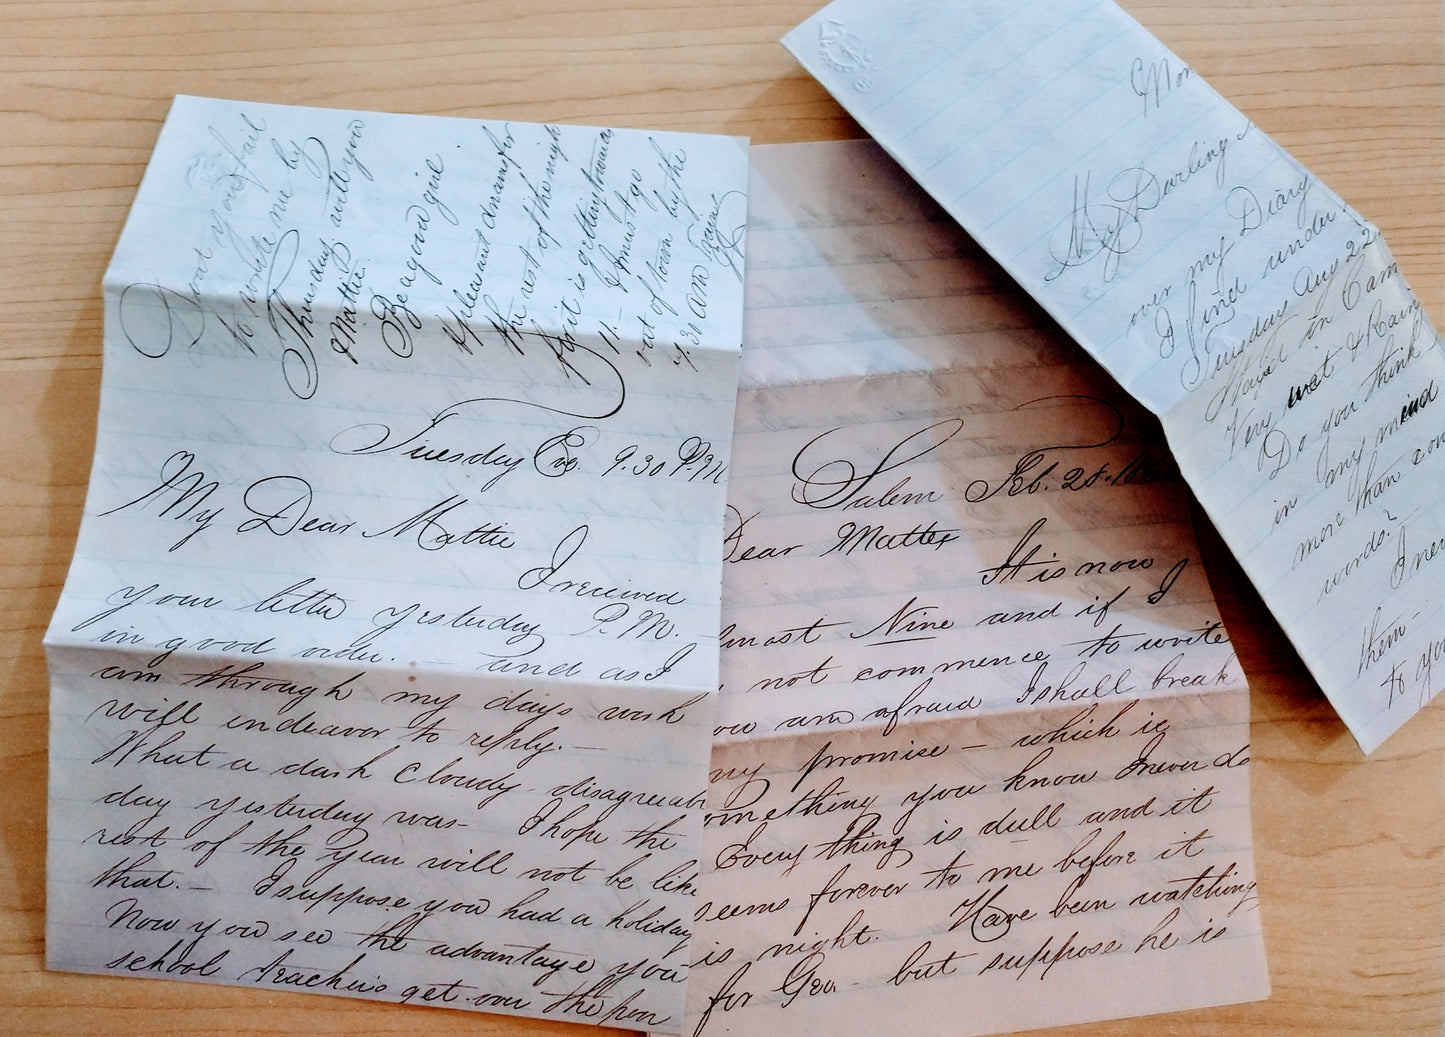 Dont you fail
to write me by
Thursday will you
Mattie.
Be a good girl.
& pleasant dreams for
the rest of the night
for it is getting towards
11.- & I must go
out of town by the
7.30 AM Train
Tuesday Eve. 9.30 P.M
My Dear Mattie
I received
your letter yesterday P.M.
in good order. - and as I
am through my days work
will endeavor to reply. -
What a dark cloudy disagreeabl
day yesterday was - I hope the
rest of the year will not be like
that. - I suppose you had a holiday
Now you see the advantage you
school teachers get over the poor
Salem Feb. 28.
Dear Mattie
It is now
lmost Nine and if I
not commence to write
ow am afraid I shall break
my promise - which is
omething you know I never do
Every thing is dull and it
seems forever to me before it
is night. Have been watching
for Geo - but suppose he is
Mon
My Darling
over my Diary
I find under
Tuesday Aug 22
Staid in Cam
Very wet & Rain
Do you think
in my mind
more than con
words?
I nev
them -
to you